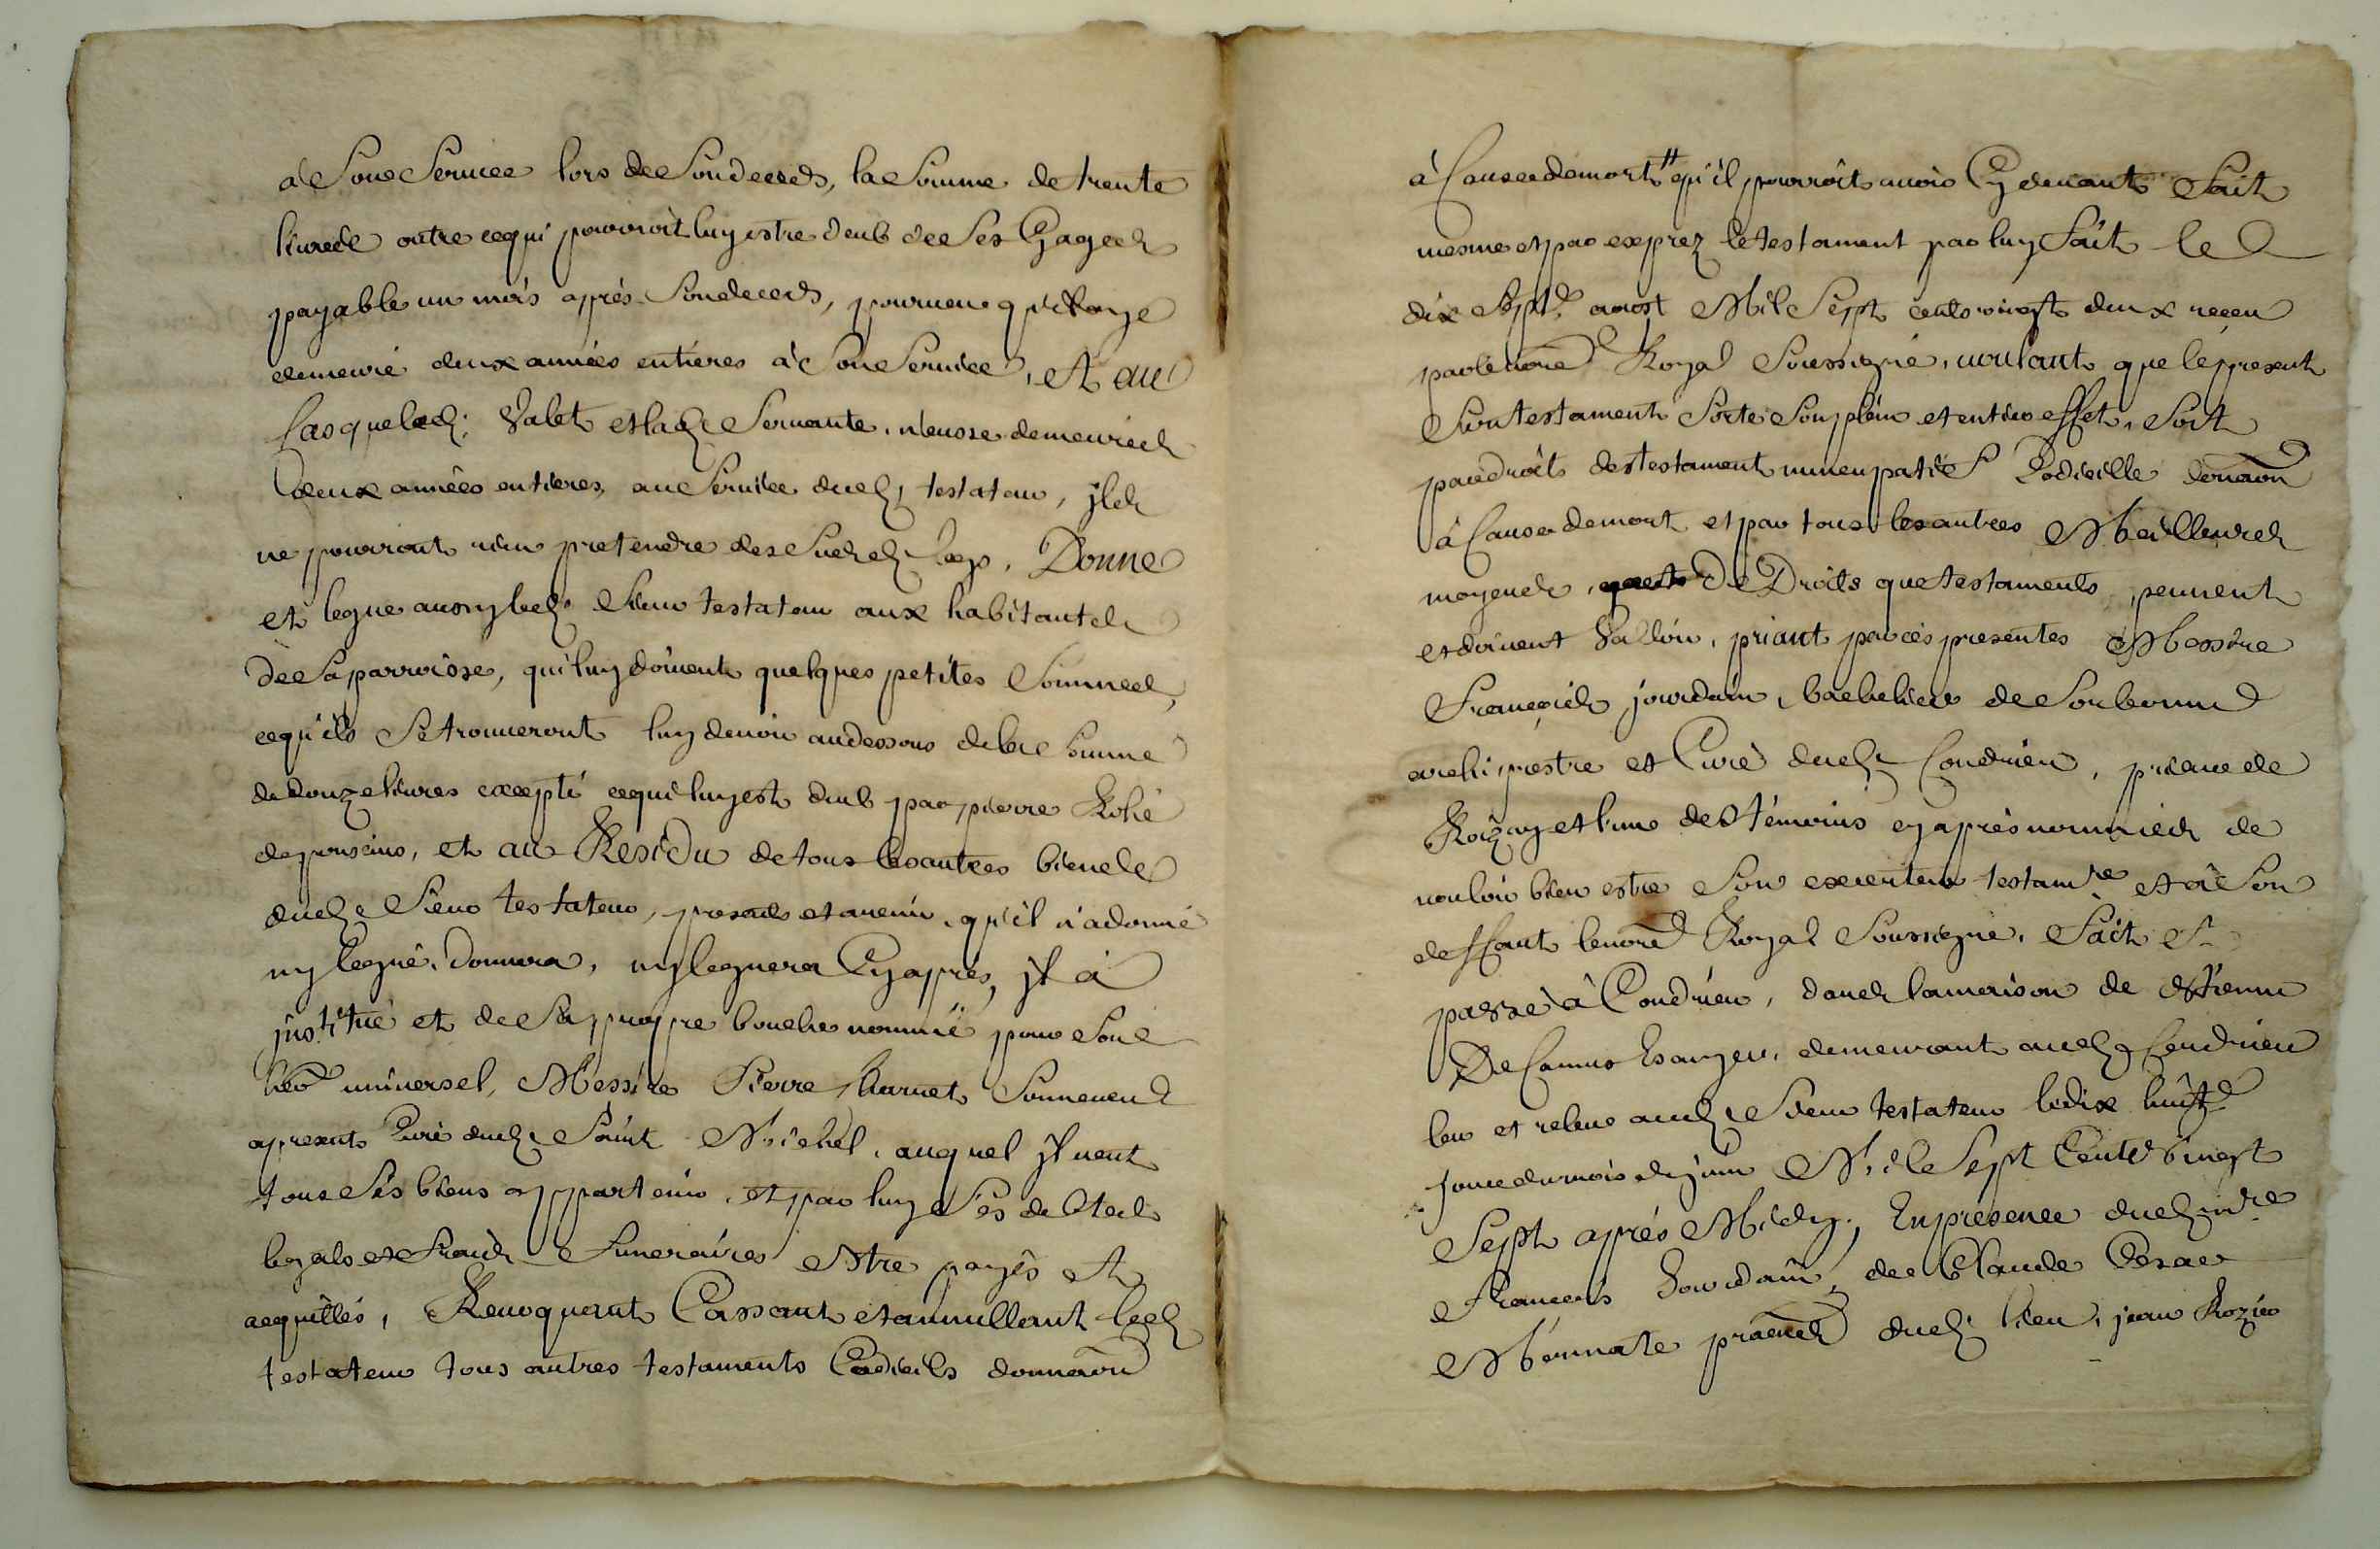 à Son Service lors de Son deceds, la Somme de trente
livres outre ce qui pourroit luy estre deub de Ses Gages
payable un mois après Son deceds, pourveu qu'il aye
demeuré deux années entières à Son Service, Et au
Cas que led. Valet et lad. Servante, n'eusse demeurés
deux années entieres, au Service dud. testateur, jls
ne pourront rien pretendre des Susd. legs, Donne
et legue aussy led. Sieur testateur aux habitants
de Sa parroisse, qui luy doivent quelques petites Sommes,
ce qu'ils Se trouveront luy devoir au dessous de la Somme
de douze livres excepté ce qui luy est deub par pierre
de, et au Residu de tous les autres biens
dud. Sieur testateur, presents et avenir, qu'il n'a donné
ny legué, donnera, ny leguera Cy après, jl à
jnstitué et de Sa propre bouche nommé pour Son
her universel, Messire Pierre Son neveu
apresent Curé dud. Saint Michel, auquel jl veut
tous Ses biens appartenir, et par luy Ses debtes
legats et frais funeraires Estre payés Et
acquittés, Revoquant Cassant et annullant led.
testateur tous autres testaments Codicils donnaon
à Cause de mort qu'il pourroit avoir Cy devant fait
mesme et par exprez le testament par luy fait le
dix Sept aoost Mil Sept cents vingt deux receu
par le nore Royal Soussigné, voulant que le present
Sien testament Sorte Son plein et entier effet, Soit
par droit de testament nuncupatif Codicille donnaon
à Cause de mort et par tous les autres Meilleures
moyens, De Droits que testaments peuvent
et doivent Valloir, priant par ces presentes Messire
François jourdain, bachelier de Sorbonne
archiprestre et Curé dud. Condrieu, prieur de
Roizey et l'un des témoins cy après nommés de
vouloir bien estre Son executeur testamre et à Son
deffaut le nore Royal Soussigné, Fait Et
passé à Condrieu, dans la maison de Estienne
De Camus, demeurant aud. Condrieu
leu et releu aud. Sieur testateur le dix huit
jour du mois de juin Mil Sept Cents Vingt
Sept après Midy; En presence dud. mre
François Jourdain, de Claude Cesar
Mounate pratn dud. lieu, jean Rozier